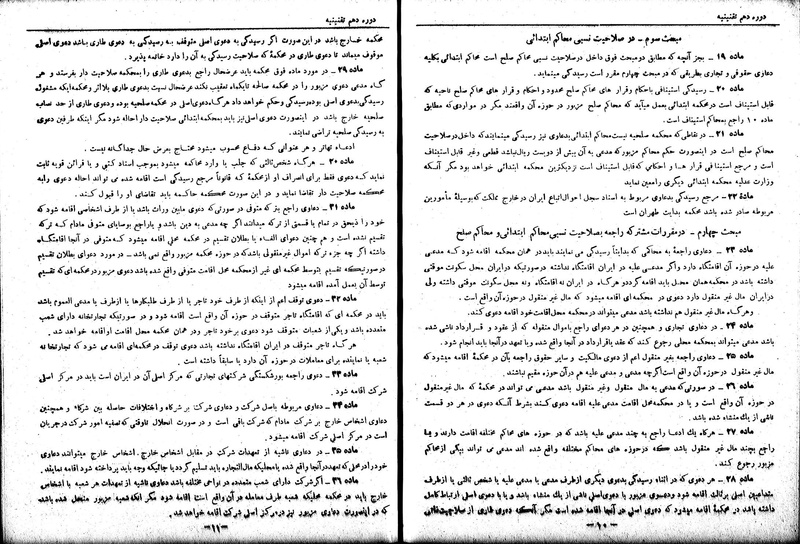 دوره دهم تقنینیه
مبحث سوم - در صلاحیت نسبی محاکم ابتدائی
ماده ۱۹ - بجز آنچه که مطابق دو مبحث فوق داخل در صلاحیت نسبی محاکم صلح است محاکم ابتدائی بکلیه
دعاوی حقوقی و تجاری بطریقی که در مبحث چهارم مقرر است رسیدگی مینماید.
ماده ۲۰ - رسیدگی استینافی باحکام و قرار های محاکم صلح محدود و احکام و قرار های محاکم صلح ناحیه که
قابل استیناف است در محکمه ابتدائی بعمل میآید که محاکم صلح مزبور در حوزه آن واقعند مگر در مواردی که مطابق
ماده ۱۰ راجع بمحاکم استیناف است.
ماده ۲۱ - در نقاطی که محکمه صلحیه نیست محاکم ابتدائی بدعاوی نیز رسیدگی مینمایند که داخل در صلاحیت
محاکم صلح است در اینصورت حکم محاکم مزبور که مدعی به آن بیش از دویست ریال نباشد قطعی و غیر قابل استیناف
است و مرجع استینافی قرار ها و احکامی که قابل استیناف است نزدیکترین محکمه ابتدائی خواهد بود مگر آنکه
وزارت عدلیه محکمه ابتدائی دیگری را معین نماید
ماده ۲۲ - مرجع رسیدگی بدعاوی مربوطه به اسناد سجل احوال اتباع ایران در خارج مملکت که بوسیلۀ مأمورین
مربوطه صادر شده باشد محکمه بدایت طهران است
مبحث چهارم - در مقررات مشترکه راجعه بصلاحیت نسبی محاکم ابتدائی و محاکم صلح
ماده ۲۳ - دعاوی راجعۀ بمحاکمی که بدایتاً رسیدگی می نمایند باید در همان محکمه اقامه شود که مدعی
علیه در حوزه آن اقامتگاه دارد واگر مدعی علیه در ایران اقامتگاه نداشته در صورتیکه در ایران محل سکونت موقتی
داشته باشد در محکمه همان محل باید اقامه گردد و هر گاه در ایران نه اقامتگاه ونه محل سکونت موقتی داشته ولی
در ایران مال غیر منقول دارد دعوی در محکمه‌ای اقامه میشود که مال غیر منقول در حوزه آن واقع است.
و هر گاه مال غیر منقول هم نداشته باشد مدعی میتواند در محکمه محل اقامت خود اقامه دعوی کند.
ماده ۲۴ - در دعاوی تجاری و همچنین در هر دعوای راجع باموال منقوله که از عقود و قرارداد ناشی شده
باشد مدعی میتواند بمحکمه محلی رجوع کند که عقد یا قرارداد در آنجا واقع شده ویا تعهد در آنجا باید انجام شود.
ماده ۲۵ - دعاوی راجعه بغیر منقول اعم از دعوی مالکیت و سایر حقوق راجعه بآن در محکمه اقامه میشود که
مال غیر منقول در حوزه آن واقع است اگرچه مدعی و مدعی علیه هم در آن حوزه مقیم نباشند.
ماده ۲۶ - در صورتی که مدعی به مال منقول وغیر منقول باشد مدعی می تواند در محکمه که مال غیر منقول
در حوزه آن واقع است و یا در محکمه محل اقامت مدعی علیه اقامه دعوی کند بشرط آنکه دعوی در هر دو قسمت
ناشی از یک منشاء شده باشد.
ماده ۲۷ - هر گاه یک ادعا راجع به چند مدعی علیه باشد که در حوزه های محاکم مختلفه اقامت دارند و یا
راجع بچند مال غیر منقول باشد که در حوزه های محاکم مختلفه واقع شده اند مدعی می تواند بیکی از محاکم
مزبور رجوع کند.
ماده ۲۸ - هر دعوی که در اثناء رسیدگی بدعوی دیگری از طرف مدعی یا مدعی علیه یا شخص ثالثی یا از طرف
متداعیین اصلی بر ثالث اقامه شود و دعوی مزبور با دعوی اصلی ناشی از یک منشاء باشد و یا با دعوی اصلی ارتباط کامل
داشته باشد در محکمۀ اقامه میشود که دعوی اصلی در آنجا اقامه شده است مگر آنکه دعوی طاری از صلاحیت ذاتی
- ۱۰ -
دوره دهم تقنینیه
محکمه خارج باشد در این صورت اگر رسیدگی به دعوی اصلی متوقف به رسیدگی به دعوی طاری باشد دعوی اصلی
موقوف میماند تا دعوی طاری در محکمۀ که صلاحیت رسیدگی به آن را دارد خاتمه پذیرد.
ماده ۲۹ - در مورد ماده فوق محکمه باید عرضحال راجع بدعوی طاری را بمحکمه صلاحیت دار بفرستد و هر
گاه مدعی دعوی مزبور را در محکمه صالحه تا یکماه تعقیب نکند عرضحال نسبت بدعوی طاری بلااثر و محکمه ایکه مشغوله
رسیدگی بدعوی اصلی بوده رسیدگی وحکم خواهد داد هرگاه دعوی اصلی در محکمه صلحیه بوده و دعوی طاری از حد نصاب
صلحیه خارج باشد در اینصورت دعوی اصلی نیز باید بمحکمه ابتدائی صلاحیت دار احاله شود مگر اینکه طرفین دعوی
به رسیدگی صلحیه تراضی نمایند.
ادعاء تهاتر و هر عنوانی که دفاع محسوب میشود محتاج بعرض حال جداگانه نیست.
ماده ۳۰ - هر گاه شخص ثالثی که جلب یا وارد محاکمه میشود بموجب اسناد کتبی و یا قرائن قویه ثابت
نماید که دعوی فقط برای انصراف او از محکمۀ که قانوناً مرجع رسیدگی است اقامه شده می تواند احاله دعوی را به
محکمه صلاحیت دار تقاضا نماید و در این صورت محکمه حاکمه باید تقاضای او را قبول کند.
ماده ۳۱ - دعاوی راجع بترکه متوفی در صورتی که دعوی مابین وراث باشد یا از طرف اشخاصی اقامه شود که
خود را ذیحق در تمام یا قسمتی از ترکه میدانند اگر چه مدعی به دین باشد و یا راجع بوصایای متوفی مادام که ترکه
تقسیم نشده است و هم چنین دعوای الغاء یا بطلان تقسیم در محکمه محلی اقامه میشود که متوفی در آنجا اقامتگاه
داشته اگر چه جزء ترکه اموال غیرمنقولی باشد که در حوزه محکمه مزبور واقع نمی باشد - در مورد دعوای بطلان تقسیم
در صورتیکه تقسیم بتوسط محکمه ای غیر از محکمه محل اقامت متوفی واقع شده باشد دعوی مزبور در محکمه ای که تقسیم
توسط آن بعمل آمده اقامه میشود
ماده ۳۲ - دعوی توقف اعم از اینکه از طرف خود تاجر یا از طرف طلبکارها یا از طرف یا مدعی العموم باشد
باید در محکمه ای که اقامتگاه تاجر متوقف در حوزه آن واقع است اقامه شود و در صورتیکه تجارتخانه دارای شعب
متعدده باشد و یکی از شعبات متوقف شود دعوی برخود تاجر و در همان محکمه محل اقامت او اقامه خواهد شد.
هر گاه تاجر متوقف در ایران اقامتگاه نداشته باشد دعوی توقف در محکمه‌ای اقامه می شود که تجارتخانه
شعبه یا نماینده برای معاملات در حوزه آن دارد یا سابقاً داشته است.
ماده ۳۳ - دعوی راجعه بورشکستگی شرکتهای تجارتی که مرکز اصلی آن در ایران است باید در مرکز اصلی
شرکت اقامه شود.
ماده ۳۴ - دعاوی مربوطه باصل شرکت و دعاوی شرکتا بر شرکاء و اختلافات حاصله بین شرکاء و همچنین
دعاوی اشخاص خارج بر شرکت مادام که شرکت باقی است و در صورت انحلال تاوقتی که تصفیه امور شرکت در جریان
است در مرکز اصلی شرکت اقامه میشود.
ماده ۳۵ - در دعاوی ناشیه از تعهدات شرکت در مقابل اشخاص خارج، اشخاص خارج میتوانند دعاوی
خود را در محلی که تعهد در آنجا واقع شده یا محلیکه مال التجاره باید تسلیم گردد یا جائیکه وجه باید پرداخته شود اقامه نمایند.
ماده ۳۶ - اگر شرکت دارای شعب متعدده در نواحی مختلفه باشد دعاوی ناشیه از تعهدات هر شعبه با اشخاص
خارج باید در محکمه محلیکه شعبه طرف معامله در آن واقع است اقامه شود مگر آنکه شعبه مزبور منحل شده باشد
که در اینصورت دعاوی مزبور نیز در مرکز اصلی شرکت اقامه خواهد شد.
- ۱۱ -